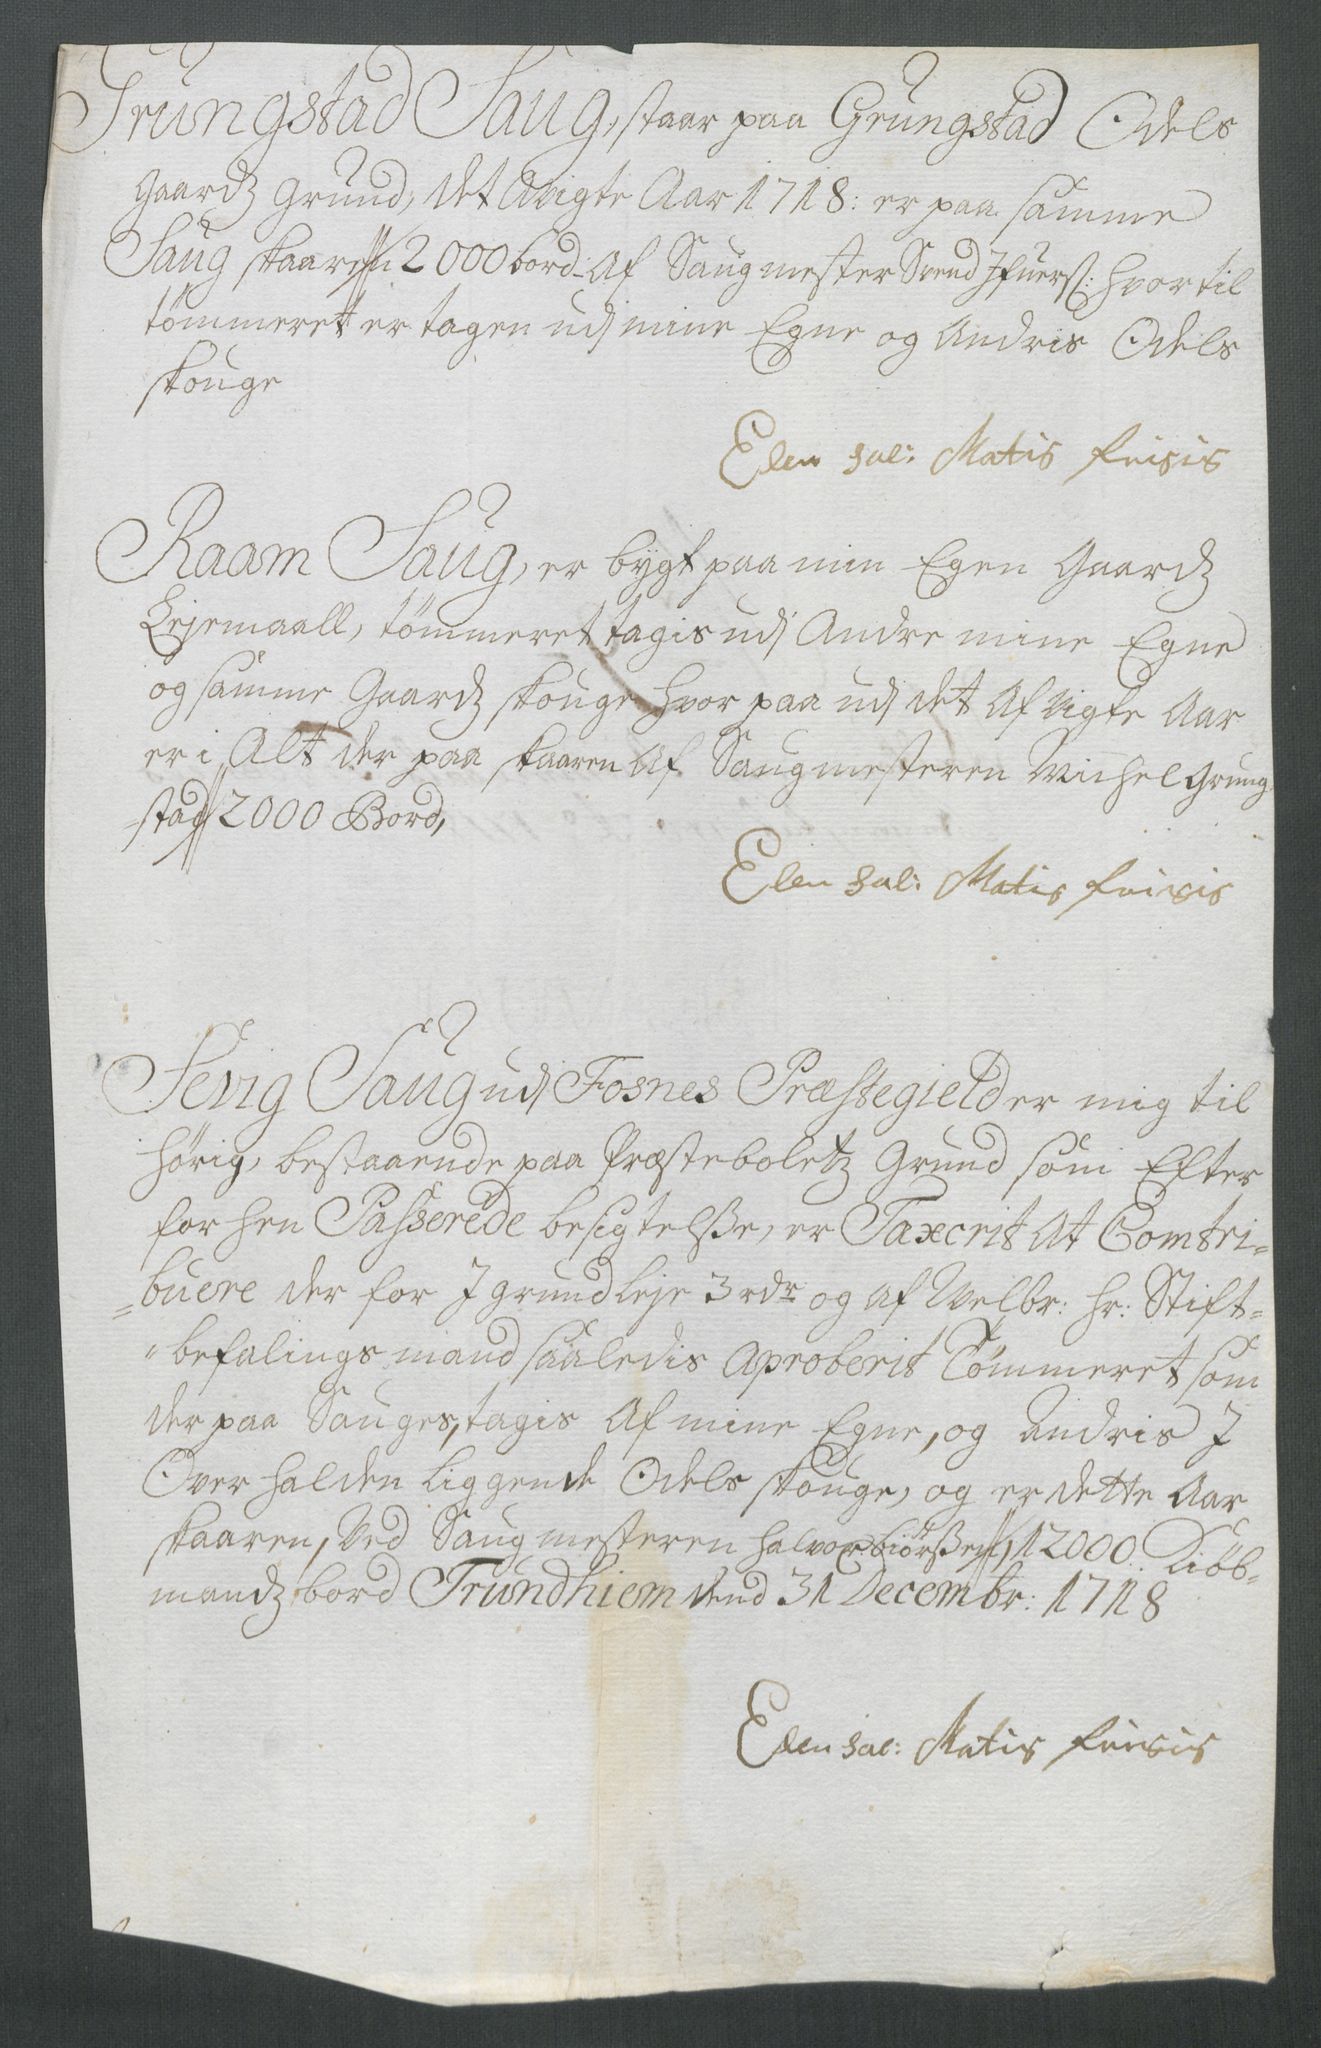 Grungstad Saug, staar paa Grungstad Odels
Gaardz Grund, det Avigte Aar 1718: er paa samme
Saug skaaren 2000 bord Af Saugmester Svend Ifuers: hvortil
tömmeret er tagen udj mine Egne og Andris Odels
skouge
Elen sal: Matis frisis
Raam Saug, er bygt paa min Egen Gaardz
Lejemaall, tömmeret tagis udj Andre mine Egne
og samme Gaardz skouge hvor paa udj det Afvigte Aar
er i Alt der paa skaaren Af Saugmesteren Michel Grung-
stad 2000 Bord,
Elen sal: Matis frisis
Sevig Saug udj Fosnes Præstegield er mig til
hörig, bestaaende paa Præsteboletz Grund som Efter
forhen Passerede besigtelsse, er Taxerit At Comtri=
=buere der for J grundleje 3 rdr og af Velbr: Hr: Stift=
=befalingsmand saaledis Aproberit Tömmeret som
der paa Sauges, tagis Af mine Egne, og Andris J
Overhalden liggende Odels skouge, og er dette Aar
skaaren, Ved Saugmesteren Halvor Biörssen 12000 Kiöb=
mandz bord Trundhiem dend 31 Decembr: 1718
Elen sal: Matis frisis